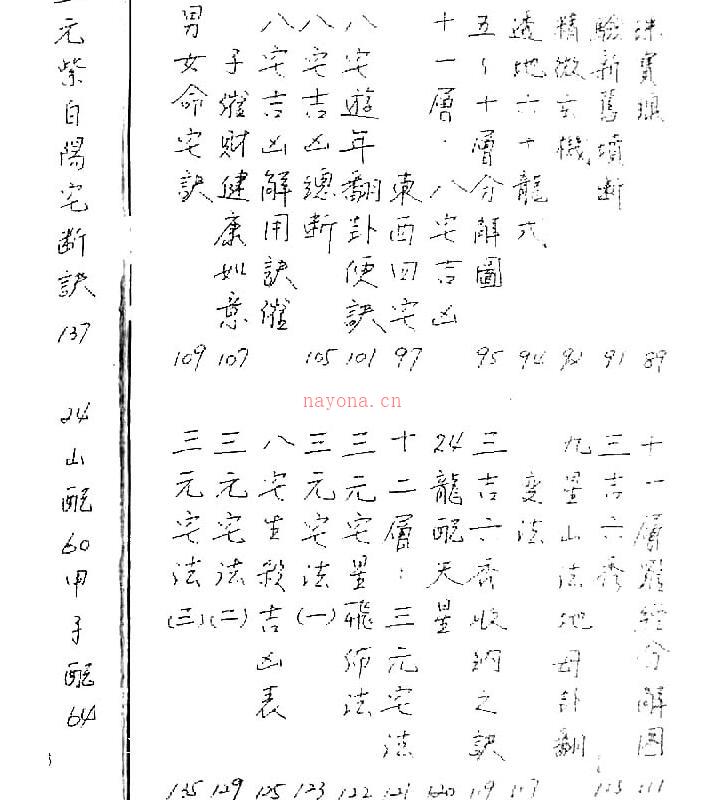 珠寶 89
驗新舊墳斷 91
精微玄機 92
透地六十龍式 94
五~十層分解圖 95
十一層:八宅吉凶
東西四宅 97
八宅遊年翻卦便訣 101
八宅吉凶總断 105
八宅吉凶解用訣催
子催財健康如意 107
男女命宅訣 109
十一層羅經分解图 111
三吉六秀 113
九星山法地母卦翻
变法 117
三吉六秀收納之訣 119
24龍配天星 120
十二層:三元宅法 121
三元宅星飛佈法 122
三元宅法(一) 123
八宅生殺吉凶表 125
三元宅法(二) 129
三元宅法(三) 135
元紫白陽宅断訣 137
24山配60甲子配64
nayona.cn